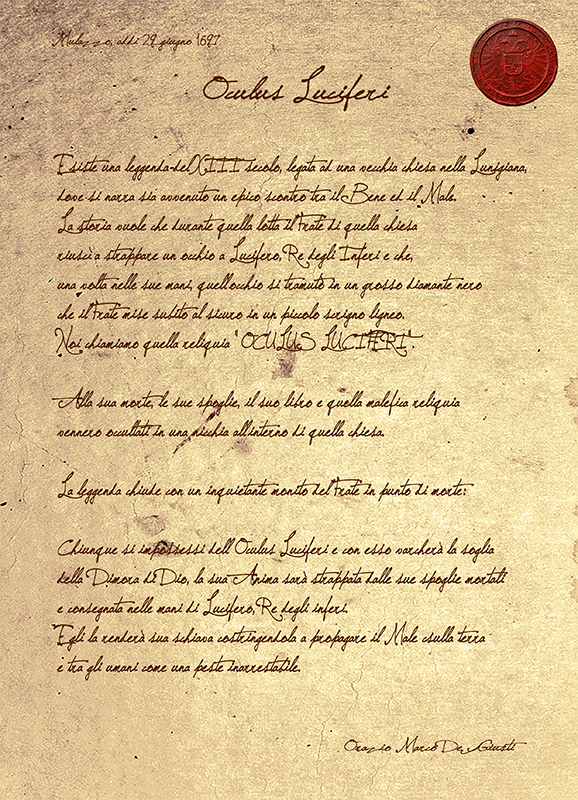 Mulazzo, addì 29 giugno 1697
Oculus Luciferi
Esiste una leggenda del XIII secolo, legata ad una vecchia chiesa nella Lunigiana,
dove si narra sia avvenuto un epico scontro tra il Bene ed il Male.
La storia vuole che durante quella lotta il Frate di quella chiesa
riuscì a strappare un occhio a Lucifero, Re degli Inferi e che,
una volta nelle sue mani, quell'occhio si tramutò in un grosso diamante nero
che il Frate mise subito al sicuro in un piccolo scrigno ligneo.
Noi chiamiamo quella reliquia "OCULUS LUCIFERI".
Alla sua morte, le sue spoglie, il suo libro e quella malefica reliquia
vennero occultati in una nicchia all'interno di quella chiesa.
La leggenda chiude con un inquietante monito del Frate in punto di morte:
Chiunque si impossessi dell'Oculus Luciferi e con esso varcherà la soglia
della Dimora di Dio, la sua Anima sarà strappata dalle sue spoglie mortali
e consegnata nelle mani di Lucifero, Re degli inferi.
Egli la renderà sua schiava costringendola a propagare il Male sulla terra
e tra gli umani come una peste inarrestabile.
Orazio Marco De Giusti